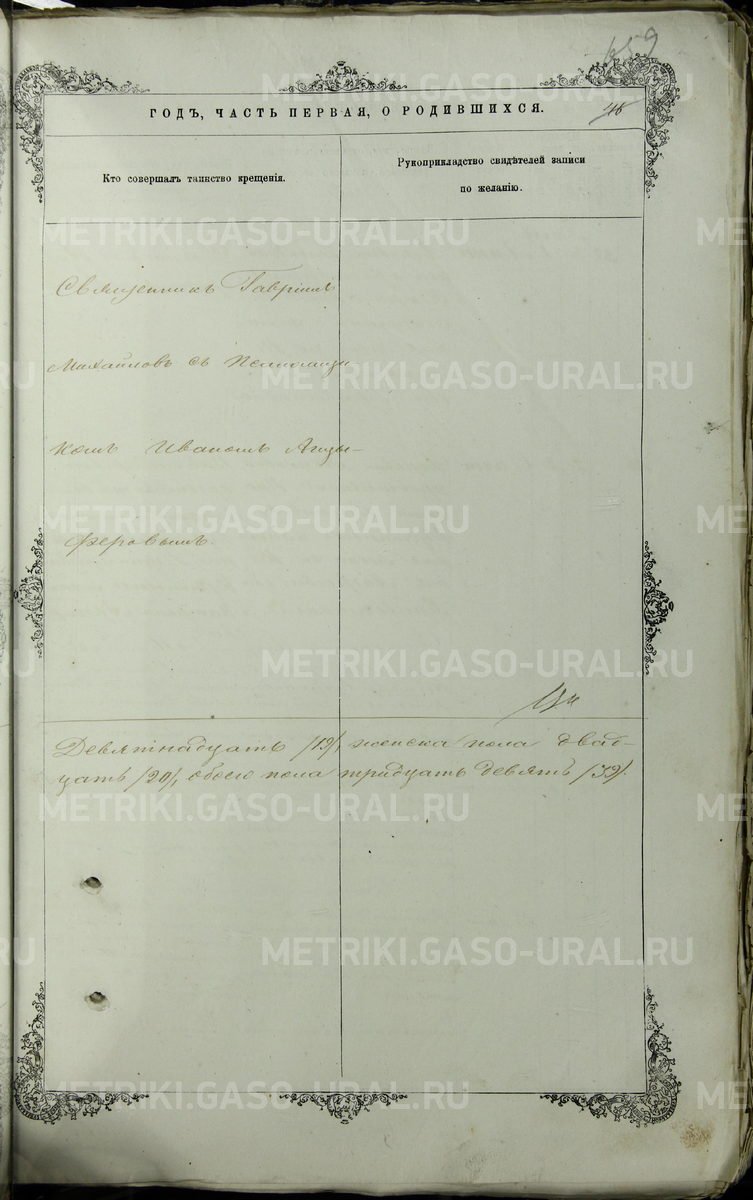 659
46
ГОДЪ, ЧАСТЬ ПЕРВАЯ, О РОДИВШИХСЯ.
Кто совершалъ таинство крещенія.
Рукоприкладство свидѣтелей записи
по желанію.
Священникъ Гавріилъ
Михайловъ съ Псаломщи
комъ Иваномъ Анцы-
феровымъ.
Девятнадцать /19/, женска пола двад-
цать /20/, обоего пола тридцать девять /39/.
METRIKI.GASO-URAL.RU